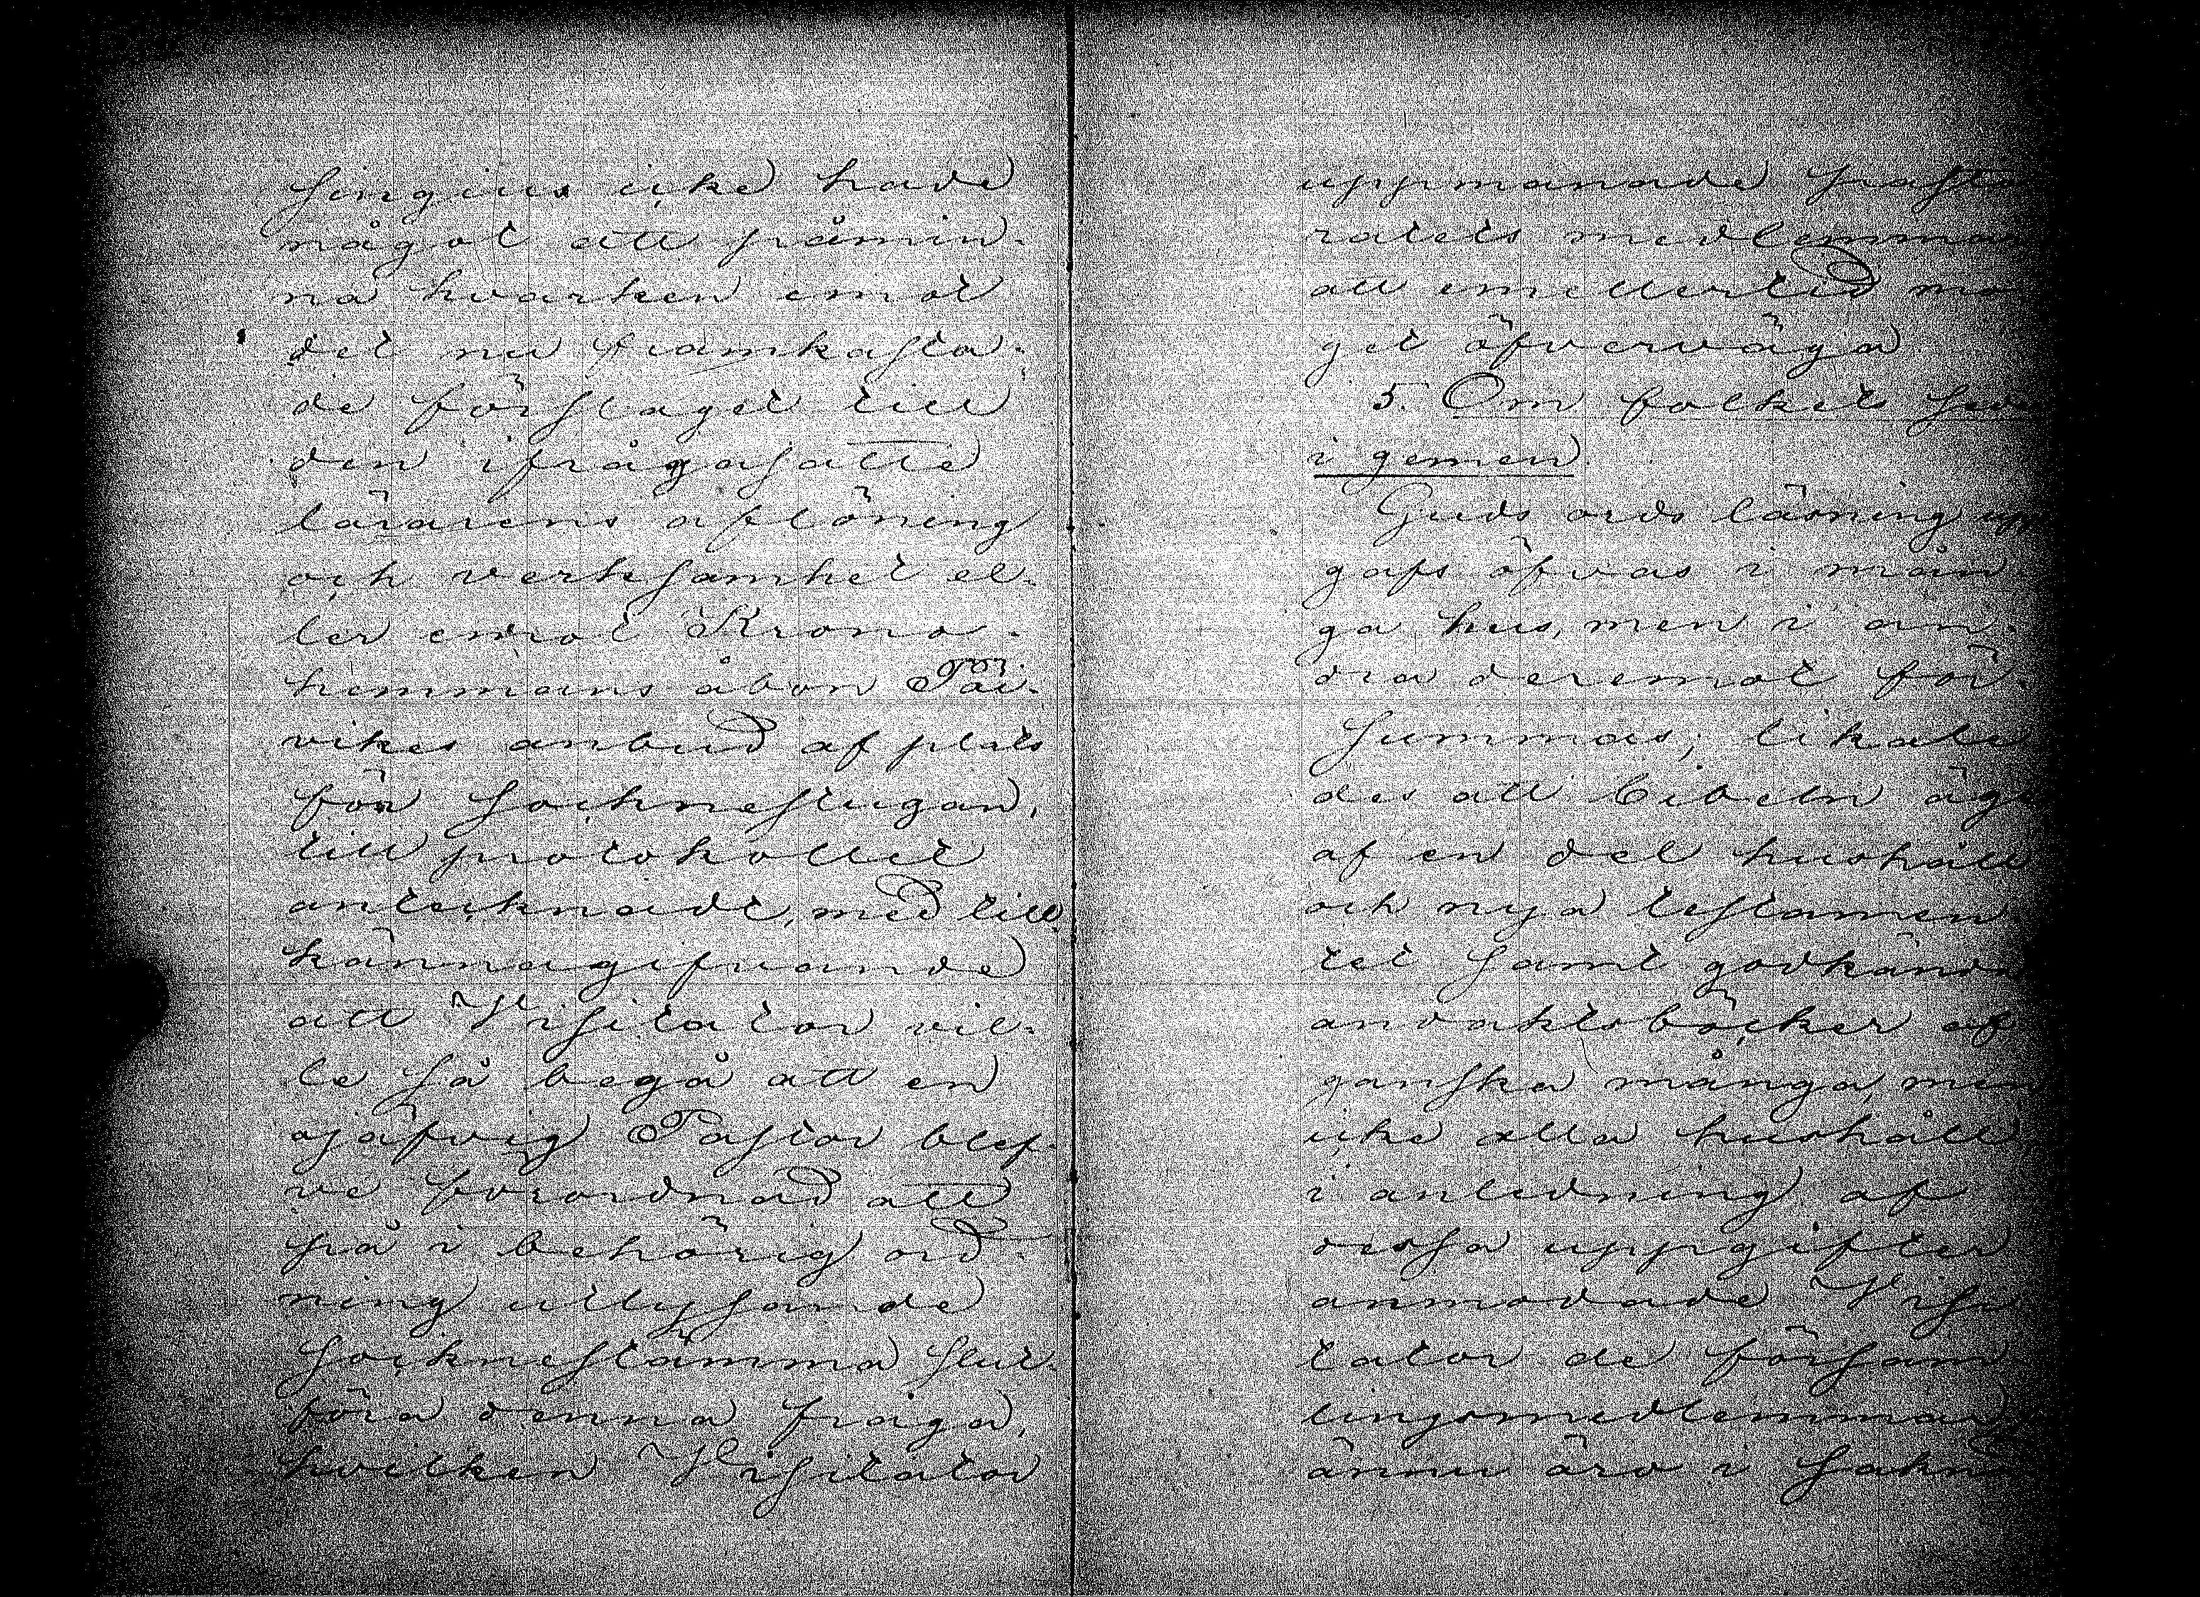 singius icke hade
något att påmin-
na hvarken emot
det nu framkasta-
de förslaget till
den ifrågasatte
lärarens aflöning
och verksamhet el-
ler emot Krono-
hemmans åbon
vikes anbud af plats
för socknestugan,
till protokollet
antecknadt, med till
kännagifvande
att Visitator vil-
le så begå att en
ojäfvig Pastor blef-
ve förordnad att
på i behörig ord-
ning utlysande
socknestämma slut-
föra denna fråga,
hvilken Visitator
uppmanade pasto
ratets medlemmar
att emellertid mo
get öfverväga
5. Om folkets sed
i gemen
Guds ords läsning upp
gafs öfvas i mån
ga hus, men i an-
dra deremot för-
summas; likale
des att bibeln äge
af en del hushåll
och nya testamen
tet samt godkända
andaktsböcker af
ganska många, men
icke alla hushåll
i anledning af
dessa uppgifter
anmodade Visi
tator de försam
lingsmedlemmar
ännu äro i sakn